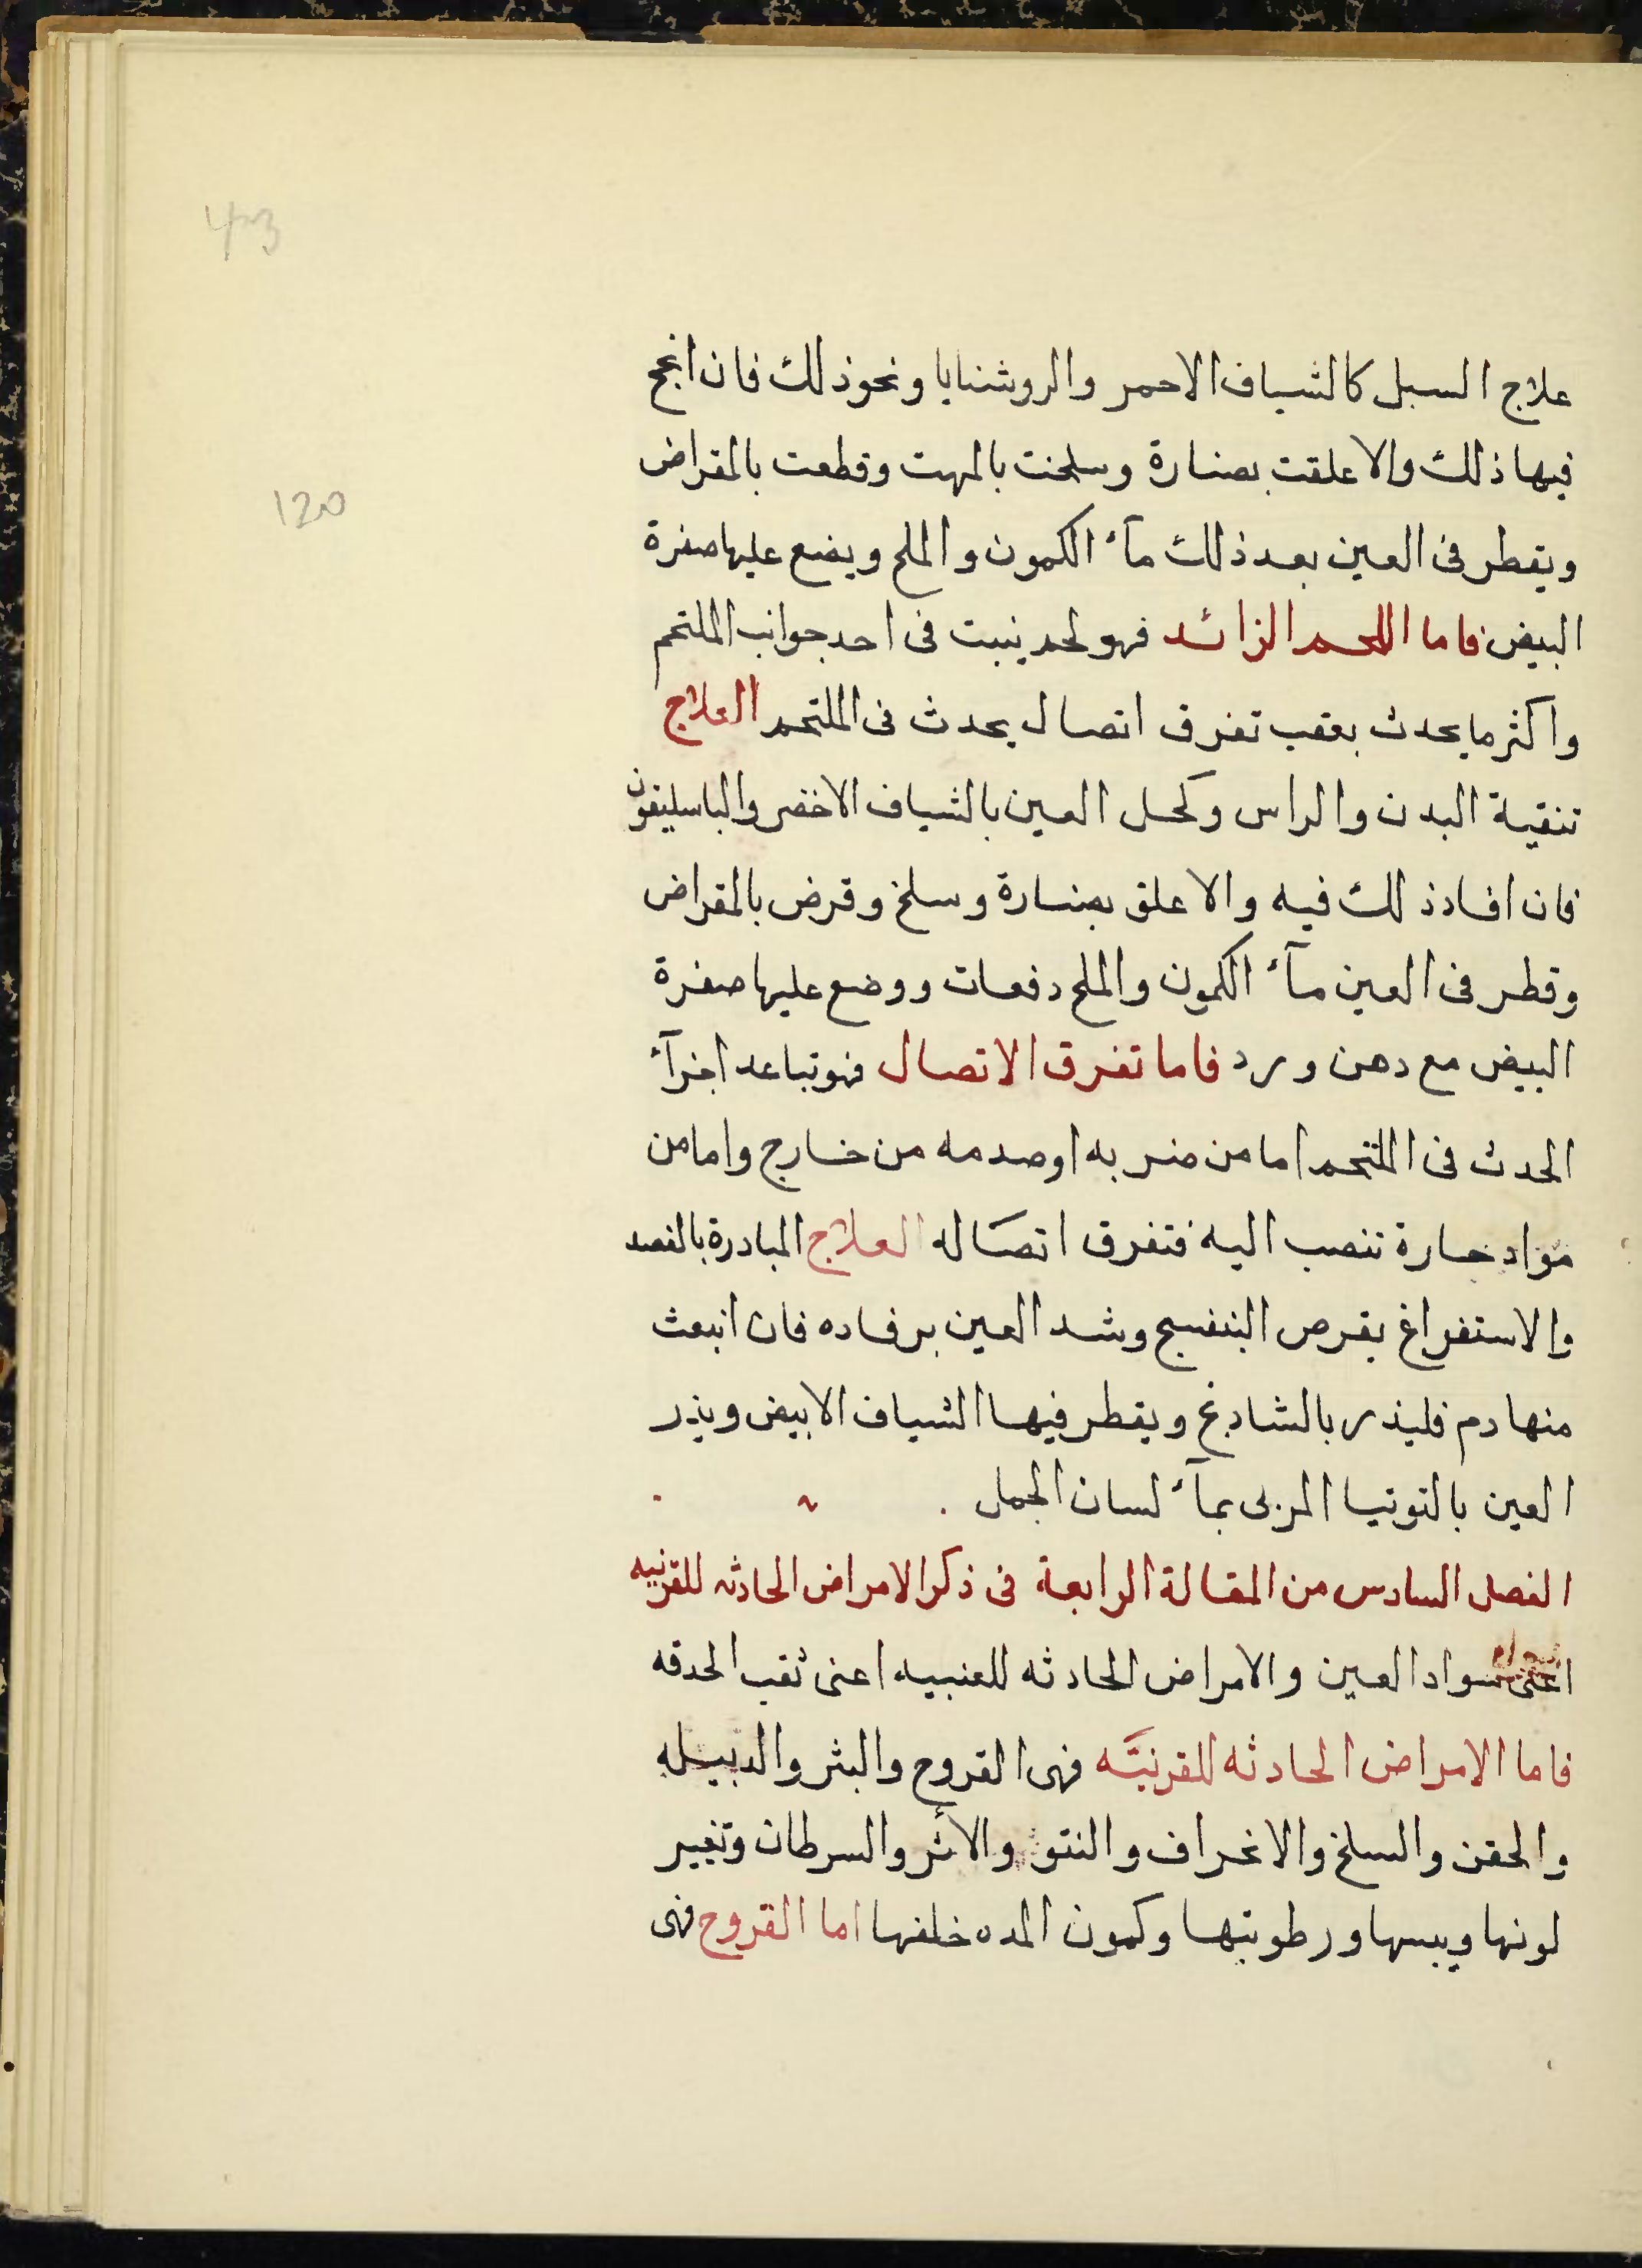 43
علاج السبل كالشياف الاحمر والروشنايا ونحو ذلك فان انجح
فيها ذلك والا علقت بصنارة وسلخت بالمهت وقطعت بالمقراض
120
ويقطر فى العين بعد ذلك مآء الكمون والملح ويضع عليها صفرة
البيض فاما اللحم الزائد فهو لحم ينبت فى احد جوانب الملتحم
واكثر ما يحدث بعقب تفرق اتصال يحدث فى الملتحم العلاج
تنقية البدن والراس وكحل العين بالشياف الاخضر والباسليقون
فان افاد ذلك فيه والا علق بصنارة وسلخ وقرض بالمقراض
وقطر فى العين مآء الكمون والملح دفعات ووضع عليها صفرة
البيض مع دهن ورد فاما تفرق الاتصال فهو تباعد اجزآء
الحدث فى الملتحم اما من ضربه او صدمه من خارج واما من
مواد حارة تنصب اليه فتفرق اتصاله العلاج المبادرة بالفصد
والاستفراغ بقرص البنفسج وشد العين برفاده فان انبعث
منها دم فليذر بالشادنج ويقطر فيها الشياف الابيض ويذر
العين بالتوتيا المربى بمآء لسان الحمل
الفصل السادس من المقالة الرابعة فى ذكر الامراض الحادثه للقرنيه
اعنى سواد العين والامراض الحادثه للعنبيه اعنى ثقب الحدقه
فاما الامراض الحادثه للقرنيَّه فهى القروح والبثر والدبيله
والحقن والسلخ والانخراف والنتوء والأثر والسرطان وتغيير
لونها ويبسها ورطوبتها وكمون المده خلفها اما القروح فهى